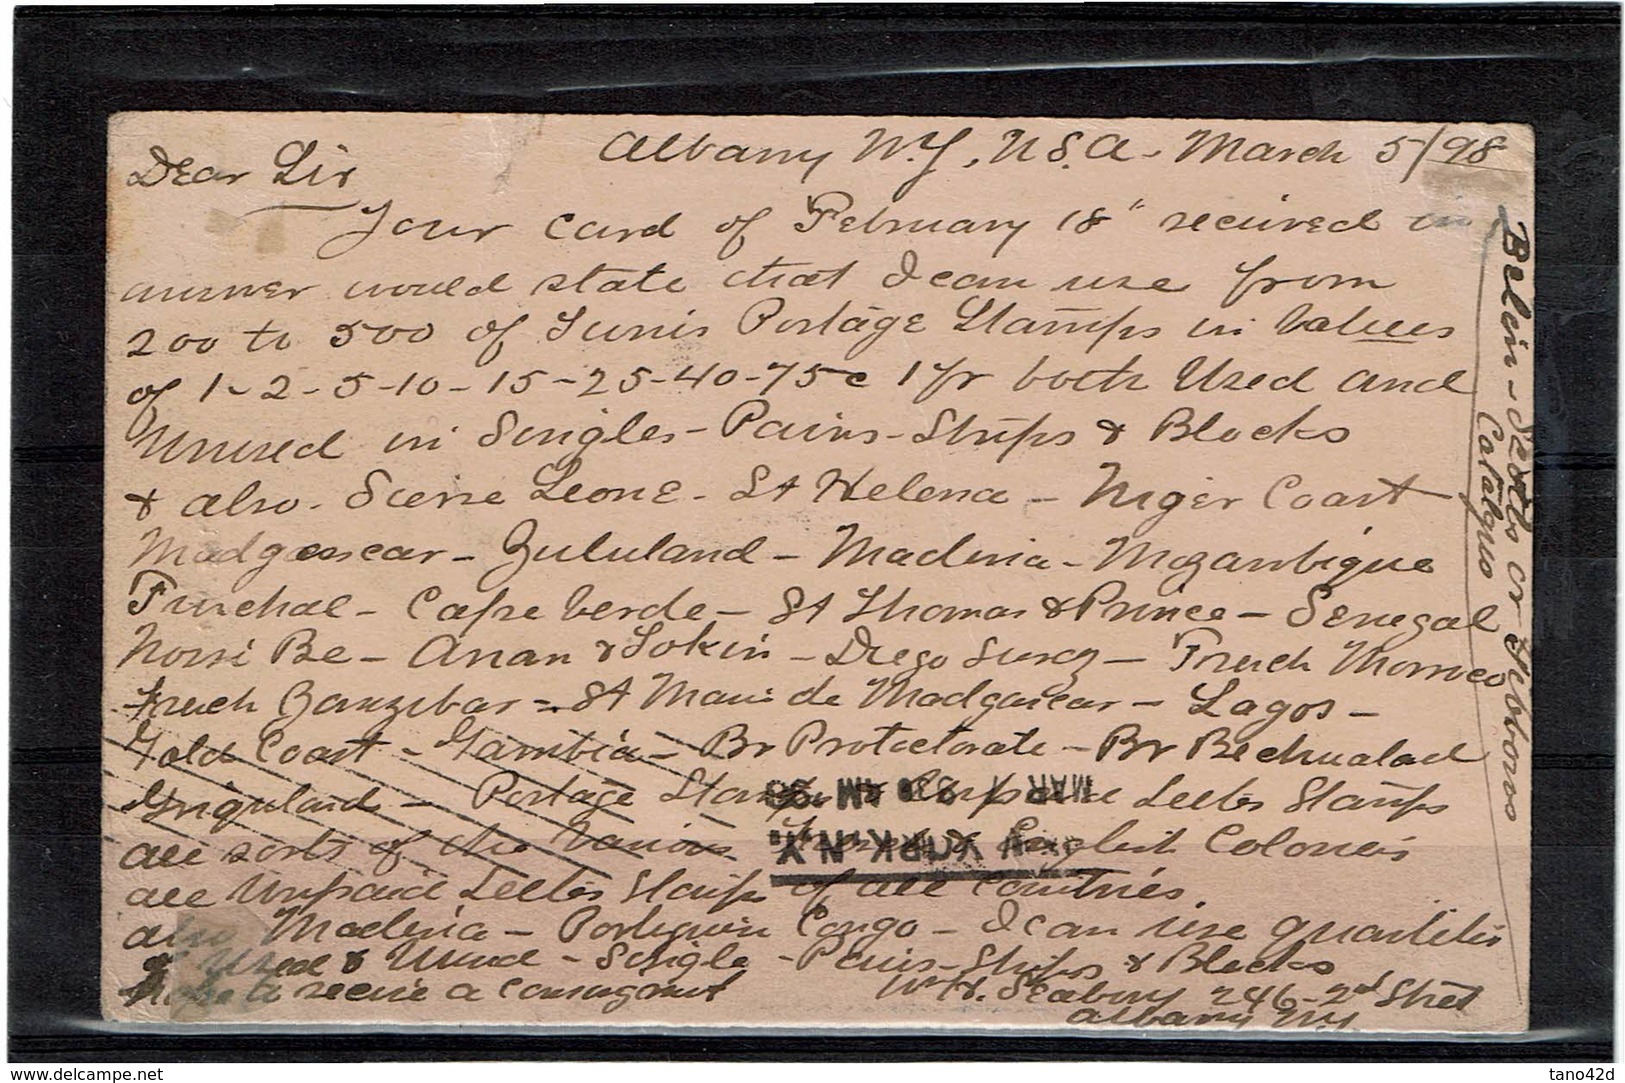 Albany N.Y. U.S.A - March 5/98
Dear Sir
Your card of February 18" received in
answer would state that I can use from
200 to 500 of Tunis Postage Stamps in Values
of 1-2-5-10-15-25-40-75c 1 Fr both Used and
Unused in Singles - Pairs - Strips & Blocks
& also - Sierre Leone - St Helena - Niger Coast
Madgascar - Zululand - Maderia - Mozambique
Funchal - Cape Verde - St Thomas & Prince - Senegal
Nossi Be - Anan & Tokin - Diego Surez - French Morroco
French Zanzibar - St Marie de Madgascar - Lagos -
Gold Coast - Gambia - Br Protectorate - Br Bechualad
Griqulaid - Postage Stamps Letter Stamps
all sorts of the various & English Colonies
all Unpaid Letter Stamps of all Countries
also Maderia - Portiguin Congo - I can use quantities
of Used & Unused - Single - Pairs - Strips & Blocks
Hope to receive a consignment
Wm. Seabury 246-2nd Street
Albany NY
Catalguo
NEW YORK, N.Y.
MAR
www.delcampe.net
tano42d